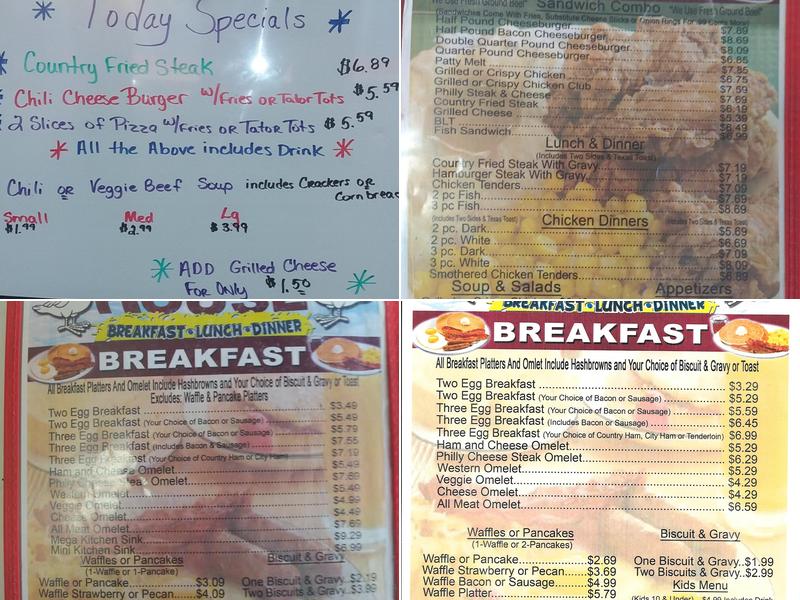 Today Specials
Country Fried Steak $6.89
Chili Cheese Burger w/Fries or Tator Tots $5.59
2 Slices of Pizza w/Fries or Tator Tots $5.59
* All the Above includes Drink *
Chili or Veggie Beef Soup includes Crackers or
Cornbread
Small Med Lg
$1.99 $2.99 $3.99
* ADD Grilled Cheese
For Only $1.50 *
We Use Fresh Ground Beef Sandwich Combo "We Use Fres'h Ground Beef"
(Sandwiches Come With Fries, Substitute Cheese Sticks or Onion Rings For .99 Cents More)
Half Pound Cheeseburger $7.89
Half Pound Bacon Cheeseburger $8.69
Double Quarter Pound Cheeseburger $8.09
Quarter Pound Cheeseburger $6.85
Patty Melt $7.85
Grilled or Crispy Chicken $6.75
Grilled or Crispy Chicken Club $7.59
Philly Steak & Cheese $7.69
Country Fried Steak $6.19
Grilled Cheese $5.39
BLT $6.49
Fish Sandwich $6.99
Lunch & Dinner
(Includes Two Sides & Texas Toast)
Country Fried Steak With Gravy $7.19
Hamburger Steak With Gravy $7.19
Chicken Tenders $7.09
2 pc Fish $7.69
3 pc Fish $8.69
(Includes Two Sides & Texas Toast) Chicken Dinners (Includes Two Sides & Texas Toast)
2 pc. Dark $5.69
2 pc. White $6.69
3 pc. Dark $7.09
3 pc. White $8.09
Smothered Chicken Tenders
Soup & Salads Appetizers
HOUSE
BREAKFAST•LUNCH•DINNER
BREAKFAST
All Breakfast Platters And Omelet Include Hashbrowns and Your Choice of Biscuit & Gravy or Toast
Excludes: Waffle & Pancake Platters
Two Egg Breakfast $3.49
Two Egg Breakfast (Your Choice of Bacon or Sausage) $5.49
Three Egg Breakfast (Your Choice of Bacon or Sausage) $5.79
Three Egg Breakfast (Includes Bacon & Sausage) $7.55
Three Egg Breakfast (Your Choice of Country Ham or City Ham) $7.19
Ham and Cheese Omelet $5.49
Philly Cheese Steak Omelet $7.69
Western Omelet $5.49
Veggie Omelet $4.99
Cheese Omelet $4.49
All Meat Omelet $7.69
Mega Kitchen Sink $9.29
Mini Kitchen Sink $6.99
Waffles or Pancakes Biscuit & Gravy
(1-Waffle or 1-Pancake)
Waffle or Pancake $3.09 One Biscuit & Gravy $2.19
Waffle Strawberry or Pecan $4.09 Two Biscuits & Gravy $3.99
BREAKFAST•LUNCH•DINNER
BREAKFAST
All Breakfast Platters And Omlet Include Hashbrowns and Your Choice of Biscuit & Gravy or Toast
Two Egg Breakfast $3.29
Two Egg Breakfast (Your Choice of Bacon or Sausage) $5.29
Three Egg Breakfast (Your Choice of Bacon or Sausage) $5.59
Three Egg Breakfast (Includes Bacon or Sausage) $6.45
Three Egg Breakfast (Your Choice of Country Ham, City Ham or Tenderloin) $6.99
Ham and Cheese Omelet $5.29
Philly Cheese Steak Omelet $6.29
Western Omelet $5.29
Veggie Omelet $4.29
Cheese Omelet $4.29
All Meat Omelet $6.59
Waffles or Pancakes Biscuit & Gravy
(1-Waffle or 2-Pancakes)
Waffle or Pancake $2.69 One Biscuit & Gravy $1.99
Waffle Strawberry or Pecan $3.69 Two Biscuits & Gravy $2.99
Waffle Bacon or Sausage $4.99 Kids Menu
Waffle Platter $5.79 (Kids 10 & Under) $4.99 Includes Drink